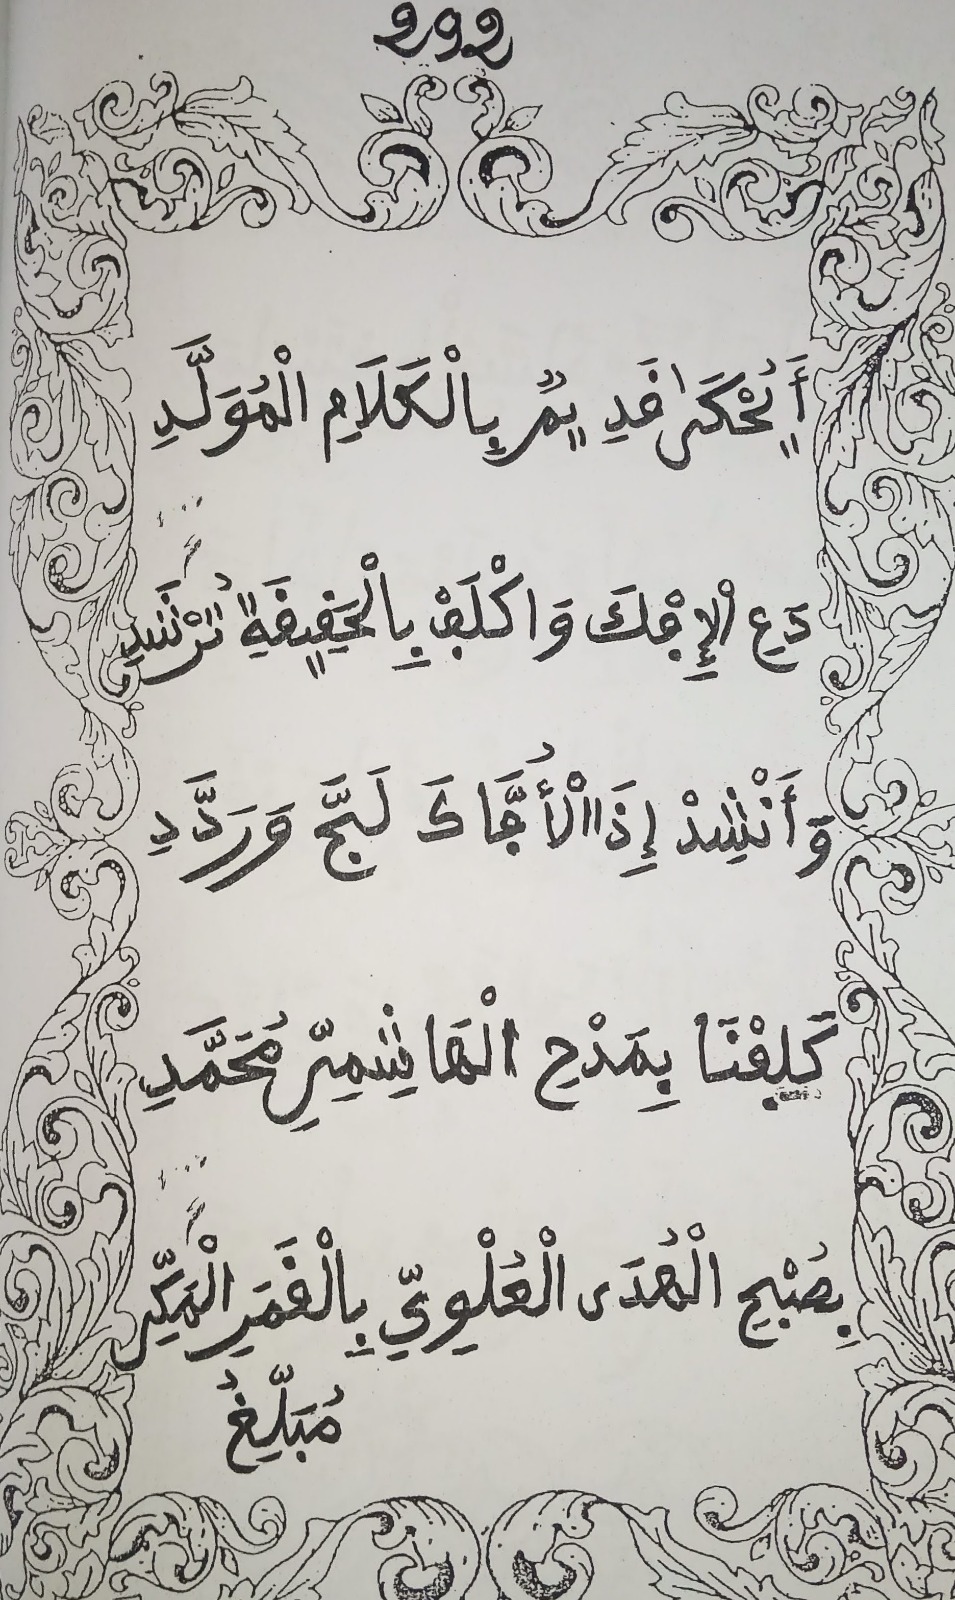 292
أَيُحْكَى قَدِيمٌ بِالْكَلَامِ الْمُوَلَّدِ
دَعِ الْإِفْكَ وَاكْلَفْ بِالْحَقِيقَةِ تُرْشَدِ
وَأَنْشِدْ إِذَا الْأَفَّاكُ لَجَّ وَرَدَّدِ
كَلِفْنَا بِمَدْحِ الْهَاشِمِيِّ مُحَمَّدِ
بِصُبْحِ الْهُدَى الْعُلْوِيِّ بِالْقَمَرِ الْمَكِّي
مُبَلِّغُ